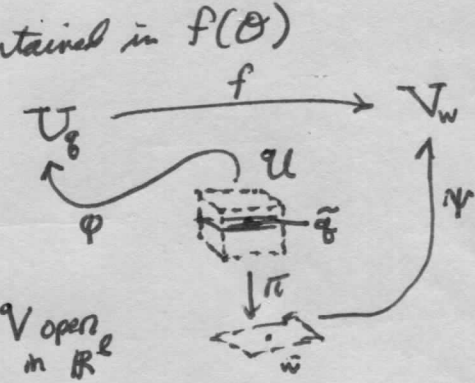 tained in f(Θ)
f
U_q V_w
𝒰
φ q̃ ψ
π
V open
in ℝ^ℓ w̃